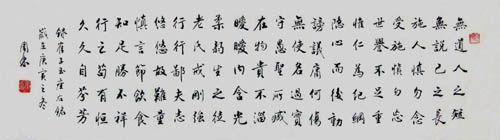 無道人之短
無說己之長
施人慎勿念
受施慎勿忘
世譽不足慕
惟仁為紀綱
隱心而後動
謗議庸何傷
無使名過實
守愚聖所臧
在涅貴不淄
曖曖內含光
柔弱生之徒
老氏戒剛強
行行鄙夫志
悠悠故難量
慎言節飲食
知足勝不祥
行之苟有恒
久久自芬芳
錄崔子玉座右銘
歲在庚寅之冬